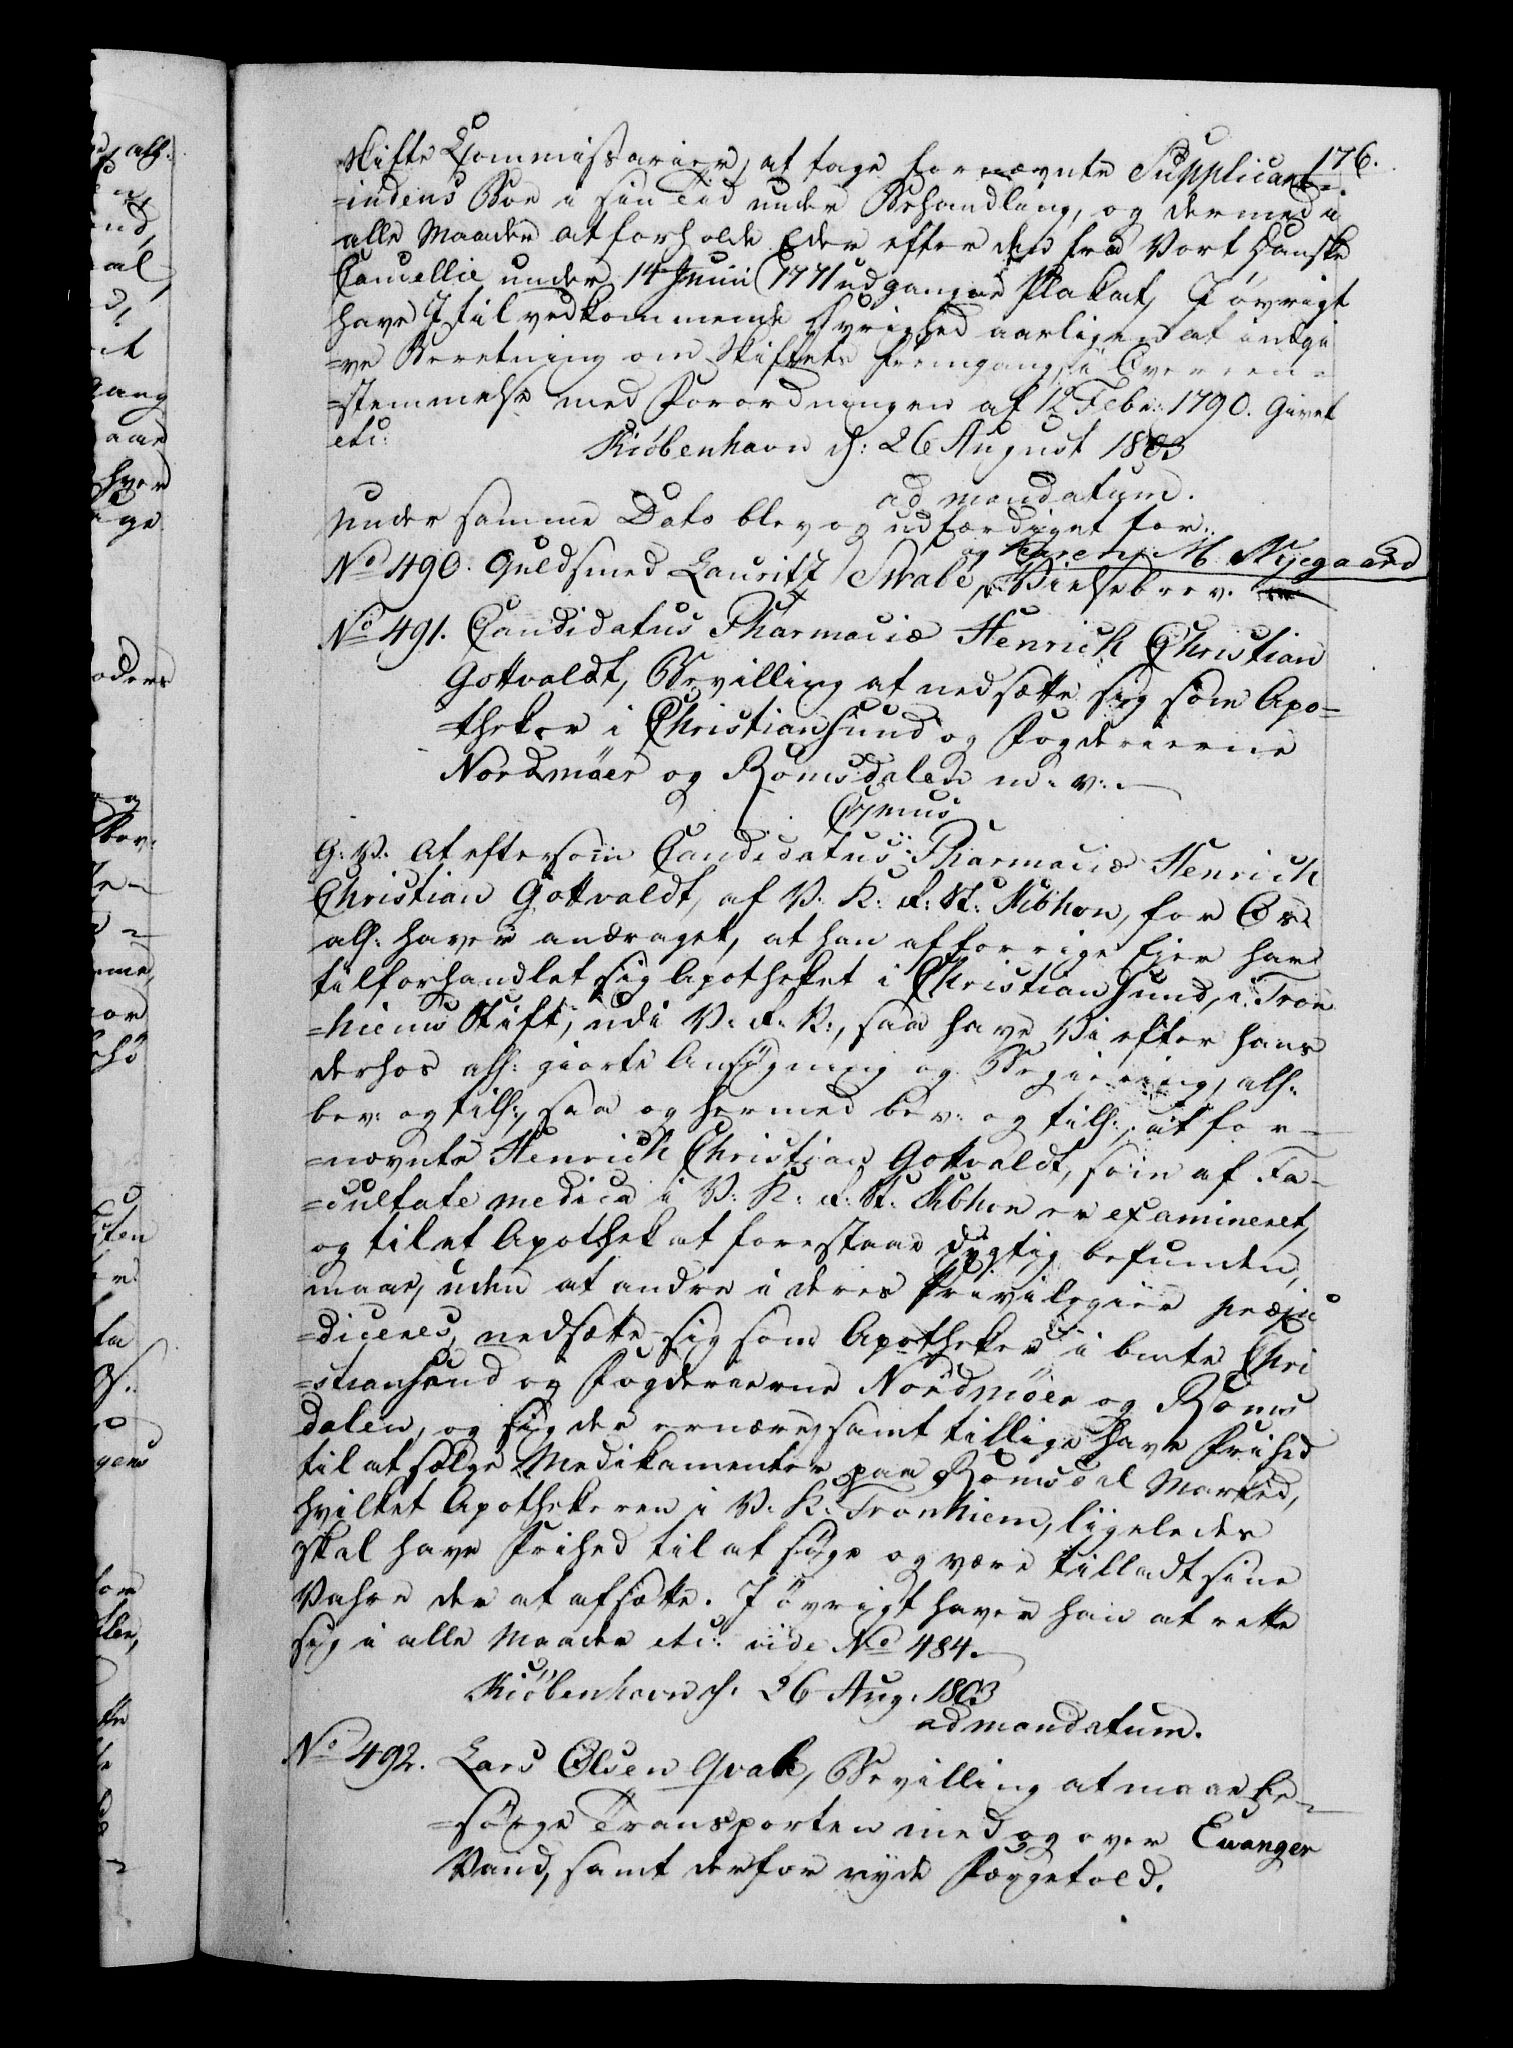 176.
Skifte Commissarier, at tage fornævnte Supplicant-
=indens Boe i sin Tid under Behandling, og dermed i
alle Maader at forholde Eder efter den fra Vort Danske
Cancellie under 14 Junii 1771 udgangne Plakat, I øvrigt
have I til vedkommende Øvrighed aarligen at indgi
=ve Beretning om Skiftets Fremgang, i Overeen-
=stemmelse med Forordningen af 12 Febr: 1790. Givet
etc: Kiöbenhavn d: 26 August 1803
ad mandatum.
Under samme Dato blev og udfærdiget for:
No 490. Guldsmed Lauritz Svabe og Karen M. Nyegaard
Vielsebrev.
No 491. Candidatus Pharmaciæ Henrich Christian
Gottvaldt, Bevilling at nedsætte sig som Apo=
=theker i Christiansund og Fogderierne
Nordmöer og Romsdalen m. v.
G: V. At eftersom Candidatus Pharmaciæ Henrich
Christian Gottvaldt, af V: K: R: St: Kbhvn, for Os
all: haver andraget, at han af forrige Eier har
tilforhandlet sig Apotheket i Christiansund, i Tron
=hiems Stift, udi V: R: N:, saa have Vi efter hans
derhos all: giorte Ansøgning og Begiering, all:
bev: og till:, saa og hermed bev: og till:, at for-
=nævnte Henrich Christian Gottvaldt, som af Fa-
=cultate medica i V: K: R: St: Kbhvn er examineret,
og til et Apothek at forestaae dygtig befunden,
maae, uden at andre i deres Privilegier præju
=diceres, nedsætte sig som Apotheker i bmte Chri
=stiansund og Fogderierne Nordmöer og Roms
dalen, og sig der ernære, samt tillige have Frihed
til at sælge Medikamenter paa Romsdal Marked,
hvilket Apothekeren i V: K: Tronhiem, ligeledes
skal have Frihed til at søge og være tilladt sine
Vahre der at afsætte. I övrigt haver han at rette
sig i alle Maader etc: vide No 484.
Kiöbenhavn d. 26 Aug. 1803
ad mandatum.
No 492. Lars Olsen Qvale, Bevilling at maae be-
=sørge Transporten med og over Evanger
Vand, samt derfor nyde Færgetold.